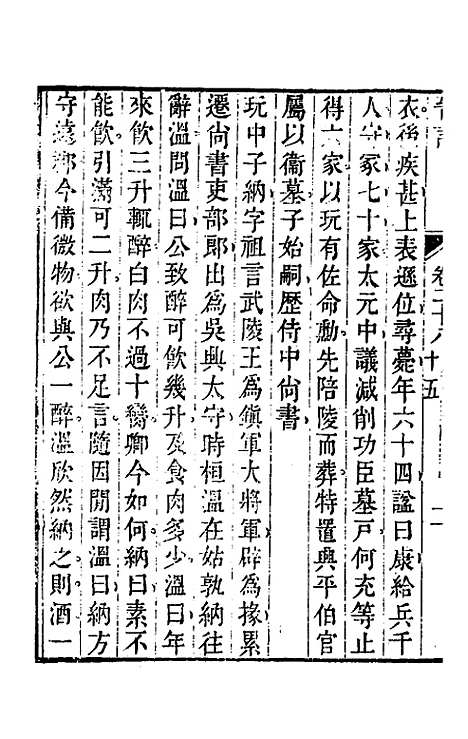 衣後疾甚上表遜位尋薨年六十四諡曰康給兵千
人守冢七十家太元中議減削功臣墓戸何充等止
得六家以玩有佐命勳先陪陵而葬特置興平伯官
屬以衞墓子始嗣歷侍中尚書
玩中子納字祖言武陵王爲鎭軍大將軍辟爲掾累
遷尚書吏部郎出爲吳興太守時桓溫在姑孰納往
辭溫問溫曰公致醉可飮幾升及食肉多少溫曰年
來飮三升輒醉白肉不過十臠卿今如何納曰素不
能飮引滿可二升肉乃不足言隨因閒謂溫曰納方
守遠郡今備微物欲與公一醉溫欣然納之則酒一